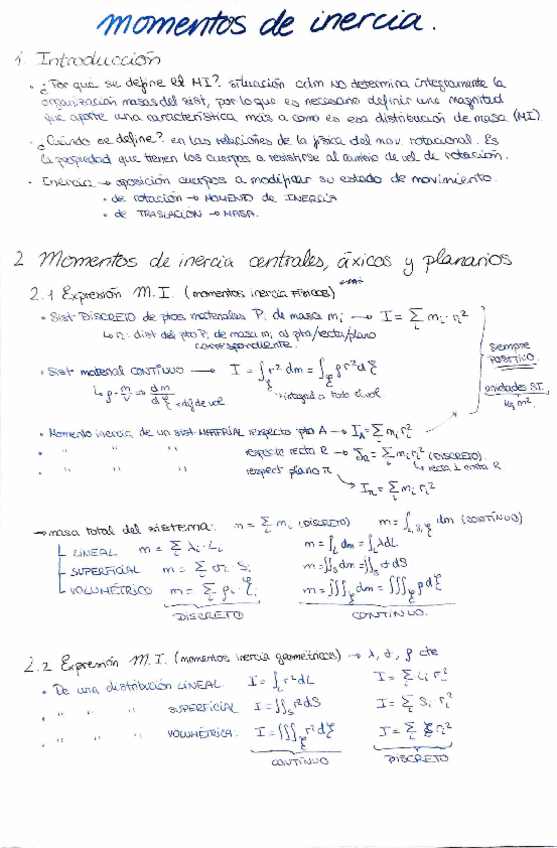 momentos de inercia.
1. Introducción
· ¿Por qué se define el MI? situación cdm NO determina íntegramente la
organización masas del sist, por lo que es necesario definir una magnitud
que aporte una característica más a como es esa distribución de masa (MI)
· ¿Cuándo se define? en las relaciones de la física del mov. rotacional. Es
la propiedad que tienen los cuerpos a resistirse al cambio de vel. de rotación.
· Inercia → oposición cuerpos a modificar su estado de movimiento.
· de rotación → MOMENTO de INERCIA
· de TRASLACIÓN → MASA.
2 Momentos de inercia centrales, áxicos y planarios
2.1 Expresión M.I. (momentos inercia Físicos)
· Sist DISCRETO de ptos materiales Pi de masa mi → I = Σ mi · ri²
↳ ri: dist del pto Pi de masa mi al pto/recta/plano
correspondiente.
Siempre
POSITIVO.
unidades SI
kg m²
· Sist material CONTÍNUO → I = ∫ r² dm = ∫ ρ r² dξ
↳ ρ = m/V ⇒ dm/dξ → dif de vol
integral a todo el vol.
· Momento inercia de un sist MATERIAL respecto pto A → I_A = Σ mi ri²
· " " " respecto recta R → I_R = Σ mi ri² (DISCRETO)
↳ recta ⊥ R
" " " respect plano π
↘ I_π = Σ mi ri²
→ masa total del sistema: m = Σ mi (DISCRETO) m = ∫ dm (CONTÍNUO)
LINEAL m = Σ λi · Li m = ∫_L dm = ∫_L λ dL
SUPERFICIAL m = Σ σi · Si m = ∬_S dm = ∬_S σ dS
VOLUMÉTRICO m = Σ ρi · ξi m = ∭ dm = ∭ ρ dξ
DISCRETO CONTÍNUO.
2.2 Expresión M.I. (momentos inercia geométricos) → λ, σ, ρ cte
· De una distribución LINEAL I = ∫_L r² dL I = Σ Li ri²
· " " " SUPERFICIAL I = ∬_S r² dS I = Σ Si ri²
· " " " VOLUMÉTRICA. I = ∭ r² dξ I = Σ ξi ri²
CONTÍNUO DISCRETO